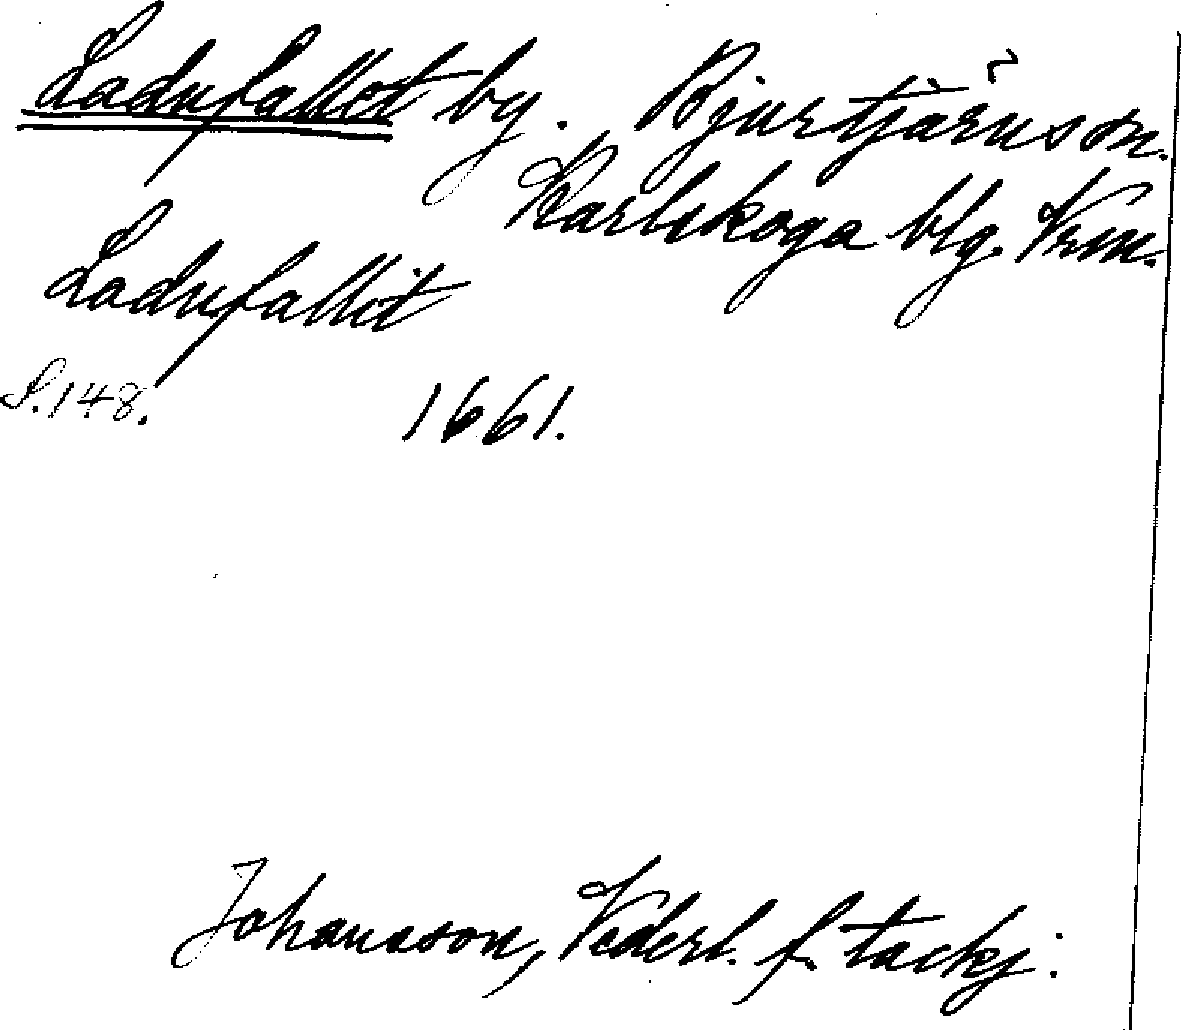 Ladufallet by. Bjurtjärnssn.
Karlskoga blg. Vrm.
Ladufallit
S.148. 1661.
Johansson, Vederl. f. tackj.